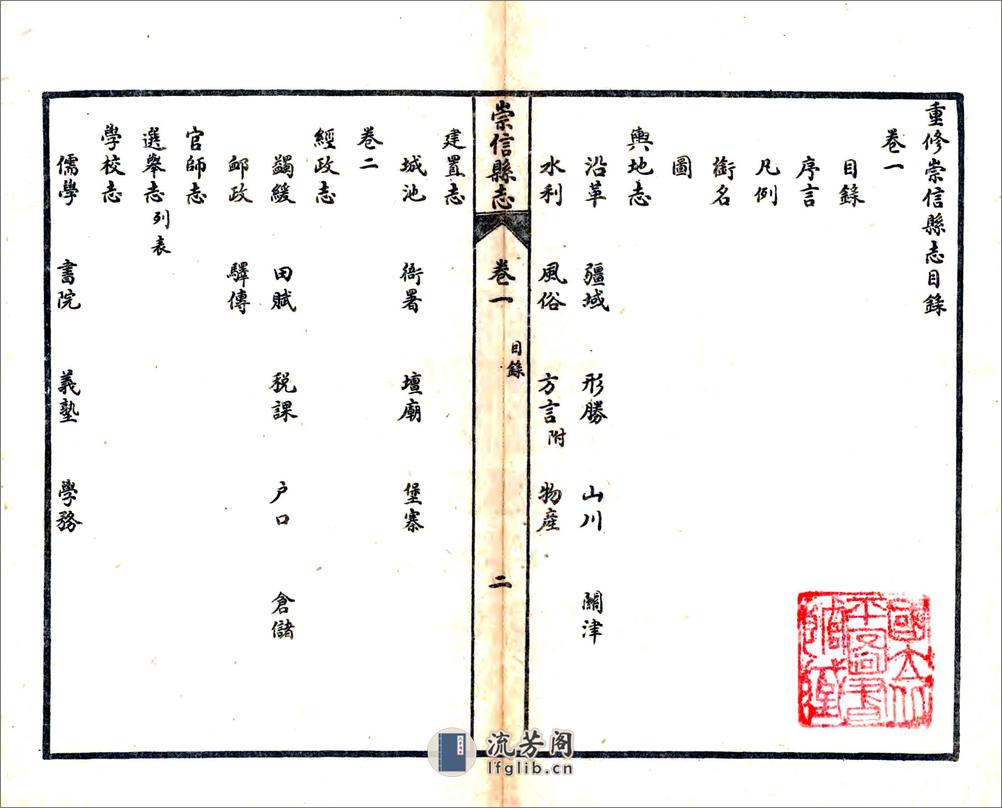 重修崇信縣志目錄
卷一
目錄
序言
凡例
銜名
圖
輿地志
沿革 疆域 形勝 山川 關津
水利 風俗 方言附 物產
崇信縣志 卷一 目錄 二
建置志
城池 衙署 壇廟 堡寨
卷二
經政志
蠲緩 田賦 税課 户口 倉儲
郵政 驛傳
官師志
選舉志列表
學校志
儒學 書院 義塾 學務
國立北平圖書館藏
流芳阁
lfglib.cn